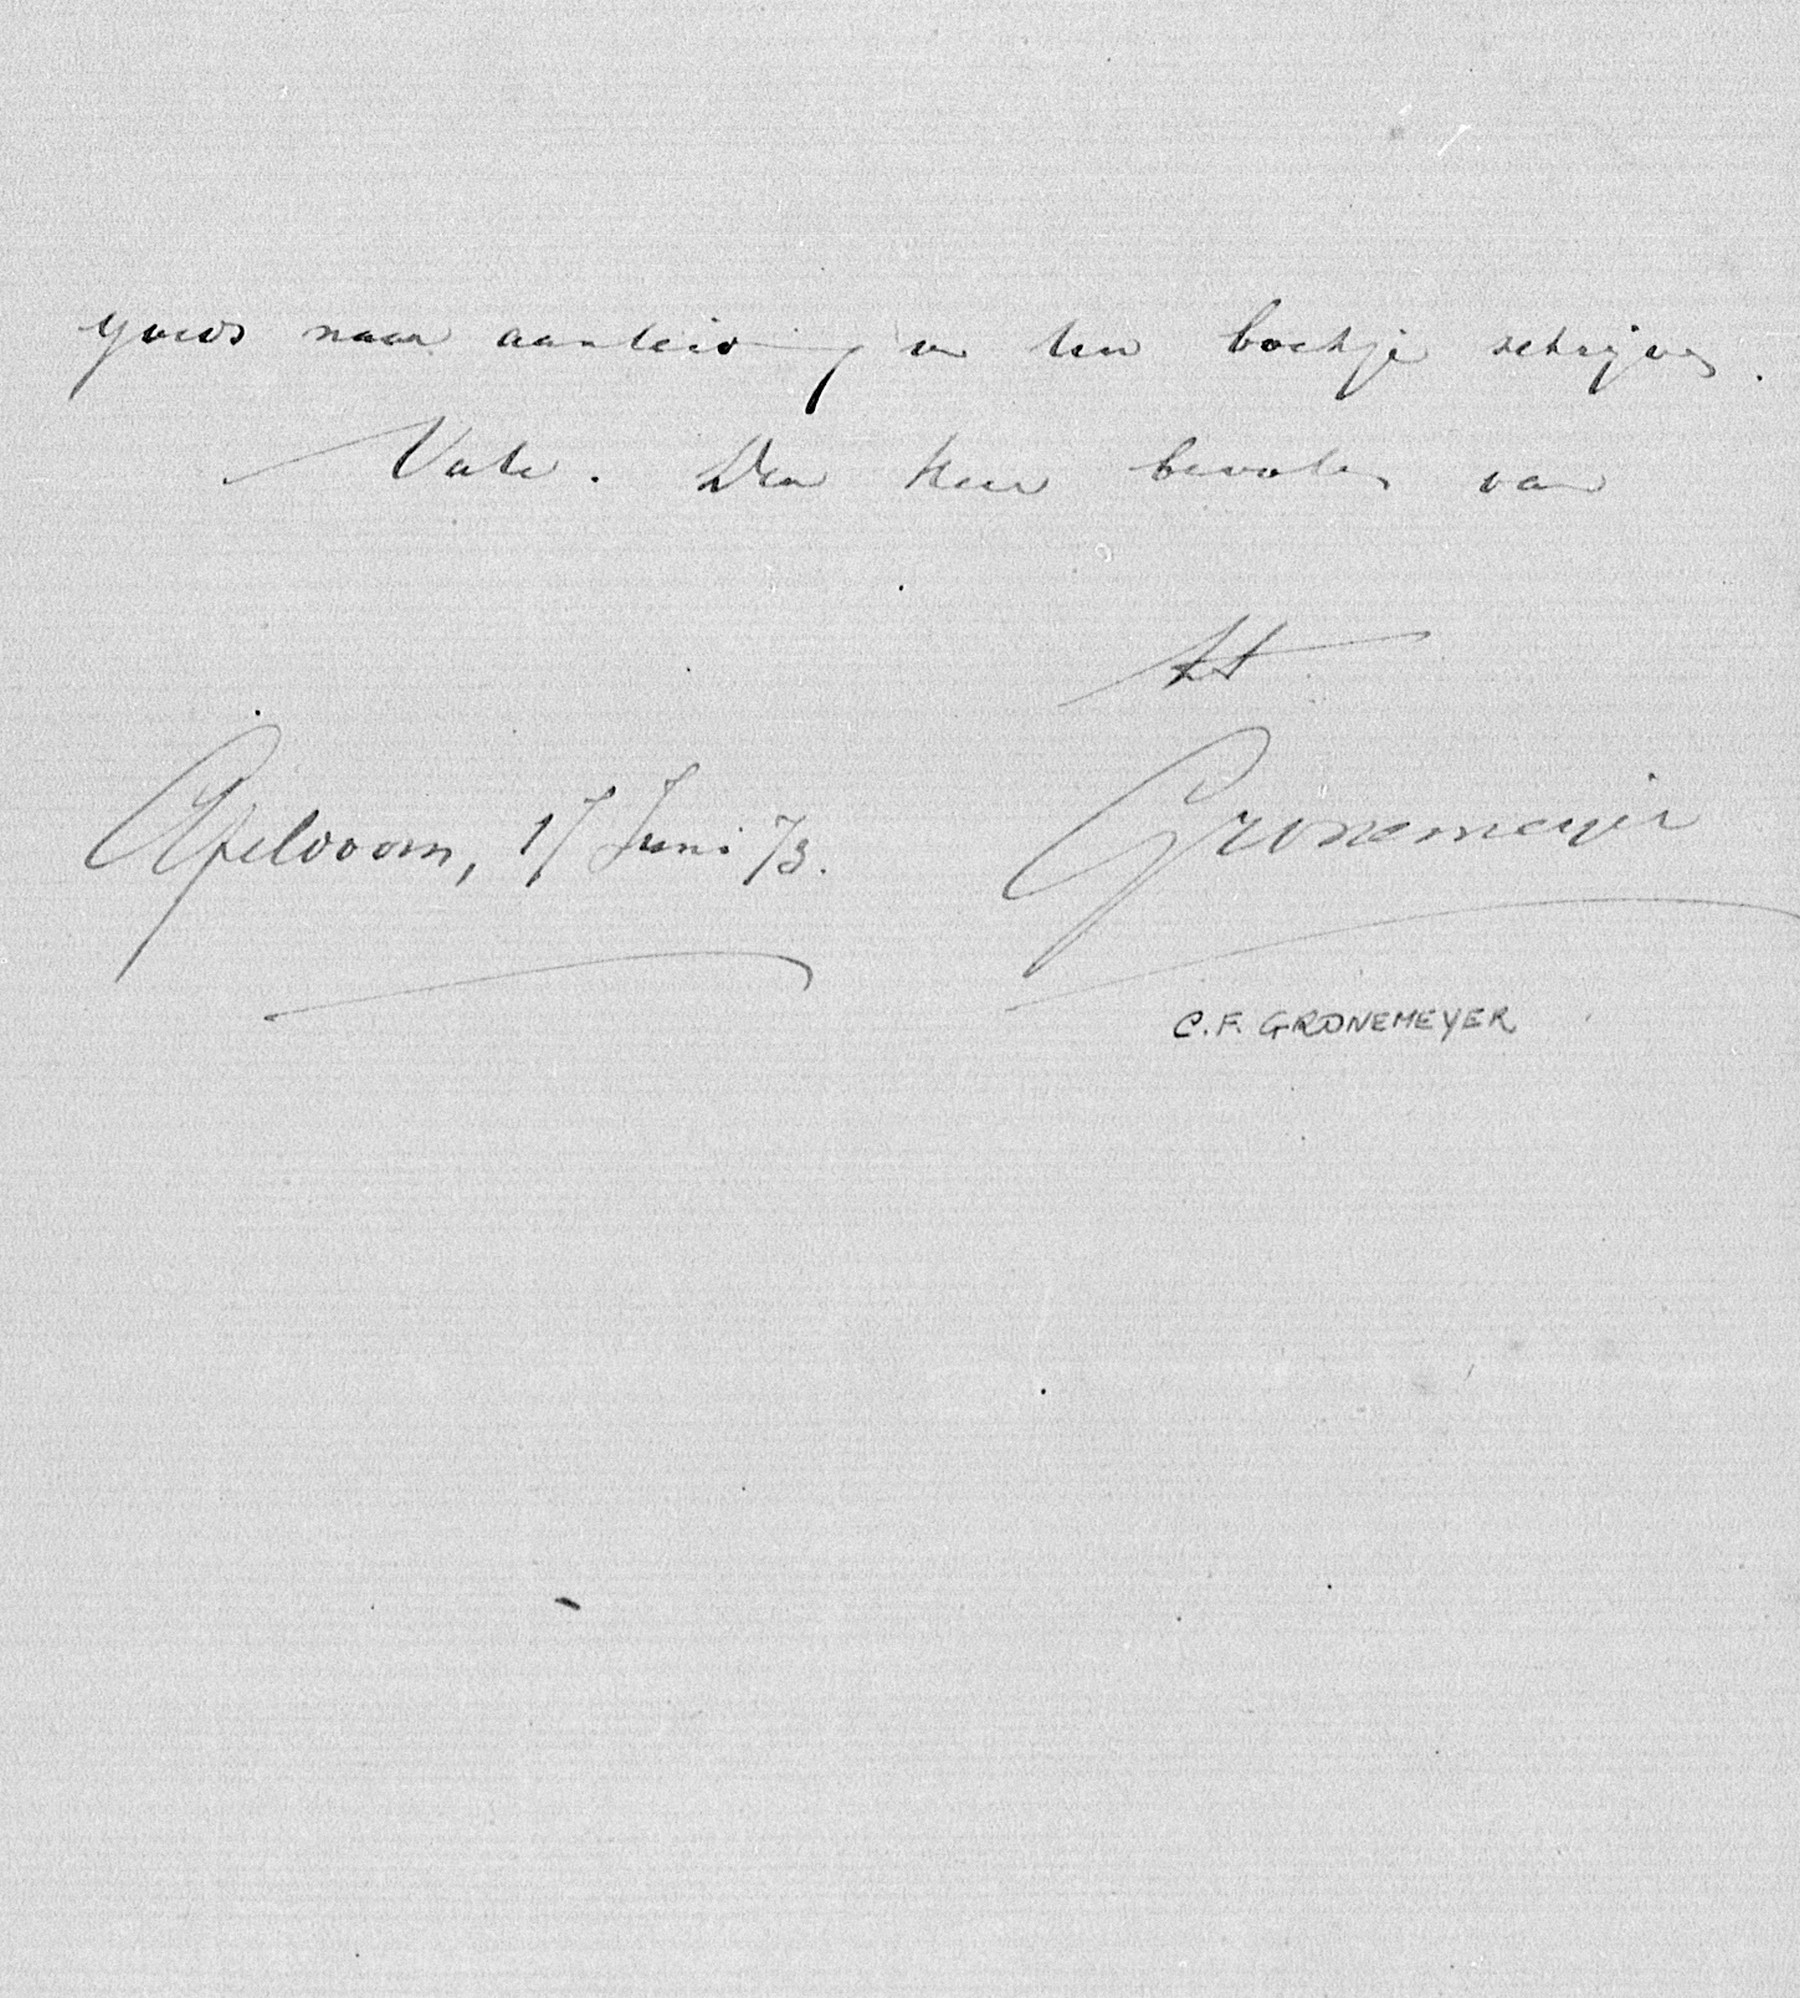 goeds naar aanleiding van een boekje schrijven.
Vale. Den Heer bevolen van
tt
Apeldoorn, 17 Juni 73.
Gronemeyer
C.F. GRONEMEYER